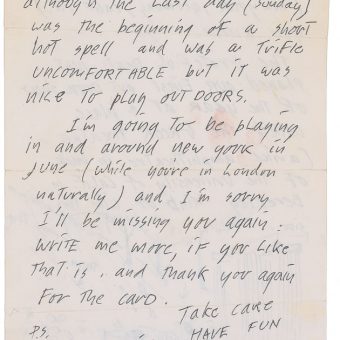 although the last day (Sunday)
was the beginning of a short
hot spell and was a trifle
UNCOMFORTABLE but it was
nice to play OUTDOORS.
I'm going to be playing
in and around new york in
June (while you're in London
naturally) and I'm sorry
I'll be missing you again.
WRITE me more, if you like
that is. and thank you again
FOR THE CARD.
TAKE CARE
HAVE FUN
P.S.